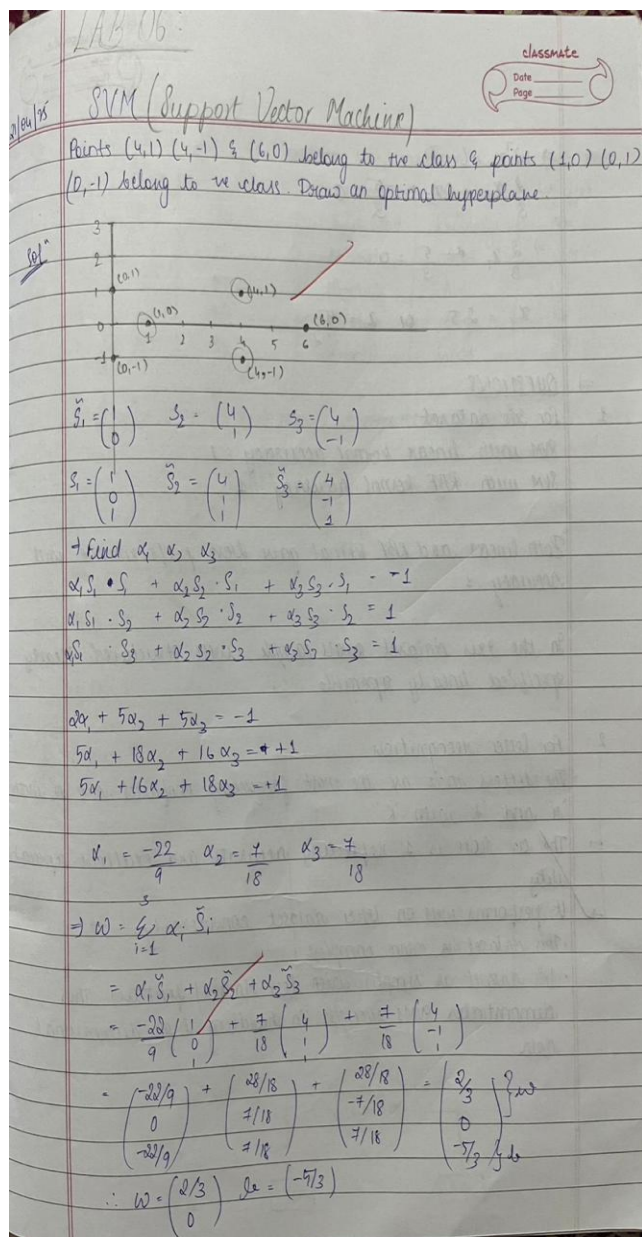 LAB 06:
classmate
Date
Page
21/04/25
SVM (Support Vector Machine)
Points (4,1) (4,-1) & (6,0) belong to +ve class & points (1,0) (0,1)
(0,-1) belong to -ve class. Draw an optimal hyperplane.
Solⁿ
3
2
1
0
-1
(0,1)
(1,0)
(4,1)
(6,0)
1 2 3 4 5 6
(0,-1)
(4,-1)
S̃₁ = (1 0) S₂ = (4 1) S₃ = (4 -1)
S₁ = (1 0 1) S̃₂ = (4 1 1) S̃₃ = (4 -1 1)
→ Find α₁ α₂ α₃
α₁S₁ · S₁ + α₂S₂ · S₁ + α₃S₃ · S₁ = -1
α₁S₁ · S₂ + α₂S₂ · S₂ + α₃S₃ · S₂ = 1
α₁S₁ · S₃ + α₂S₂ · S₃ + α₃S₃ · S₃ = 1
2α₁ + 5α₂ + 5α₃ = -1
5α₁ + 18α₂ + 16α₃ = +1
5α₁ + 16α₂ + 18α₃ = +1
α₁ = -22/9 α₂ = 7/18 α₃ = 7/18
⇒ ω = 3 Σ i=1 αᵢ S̃ᵢ
= α₁S̃₁ + α₂S̃₂ + α₃S̃₃
= -22/9 (1 0 1) + 7/18 (4 1 1) + 7/18 (4 -1 1)
= (-22/9 0 -22/9) + (28/18 7/18 7/18) + (28/18 -7/18 7/18) = (2/3 0 -5/3) }ω }b
∴ ω = (2/3 0) b = (-5/3)